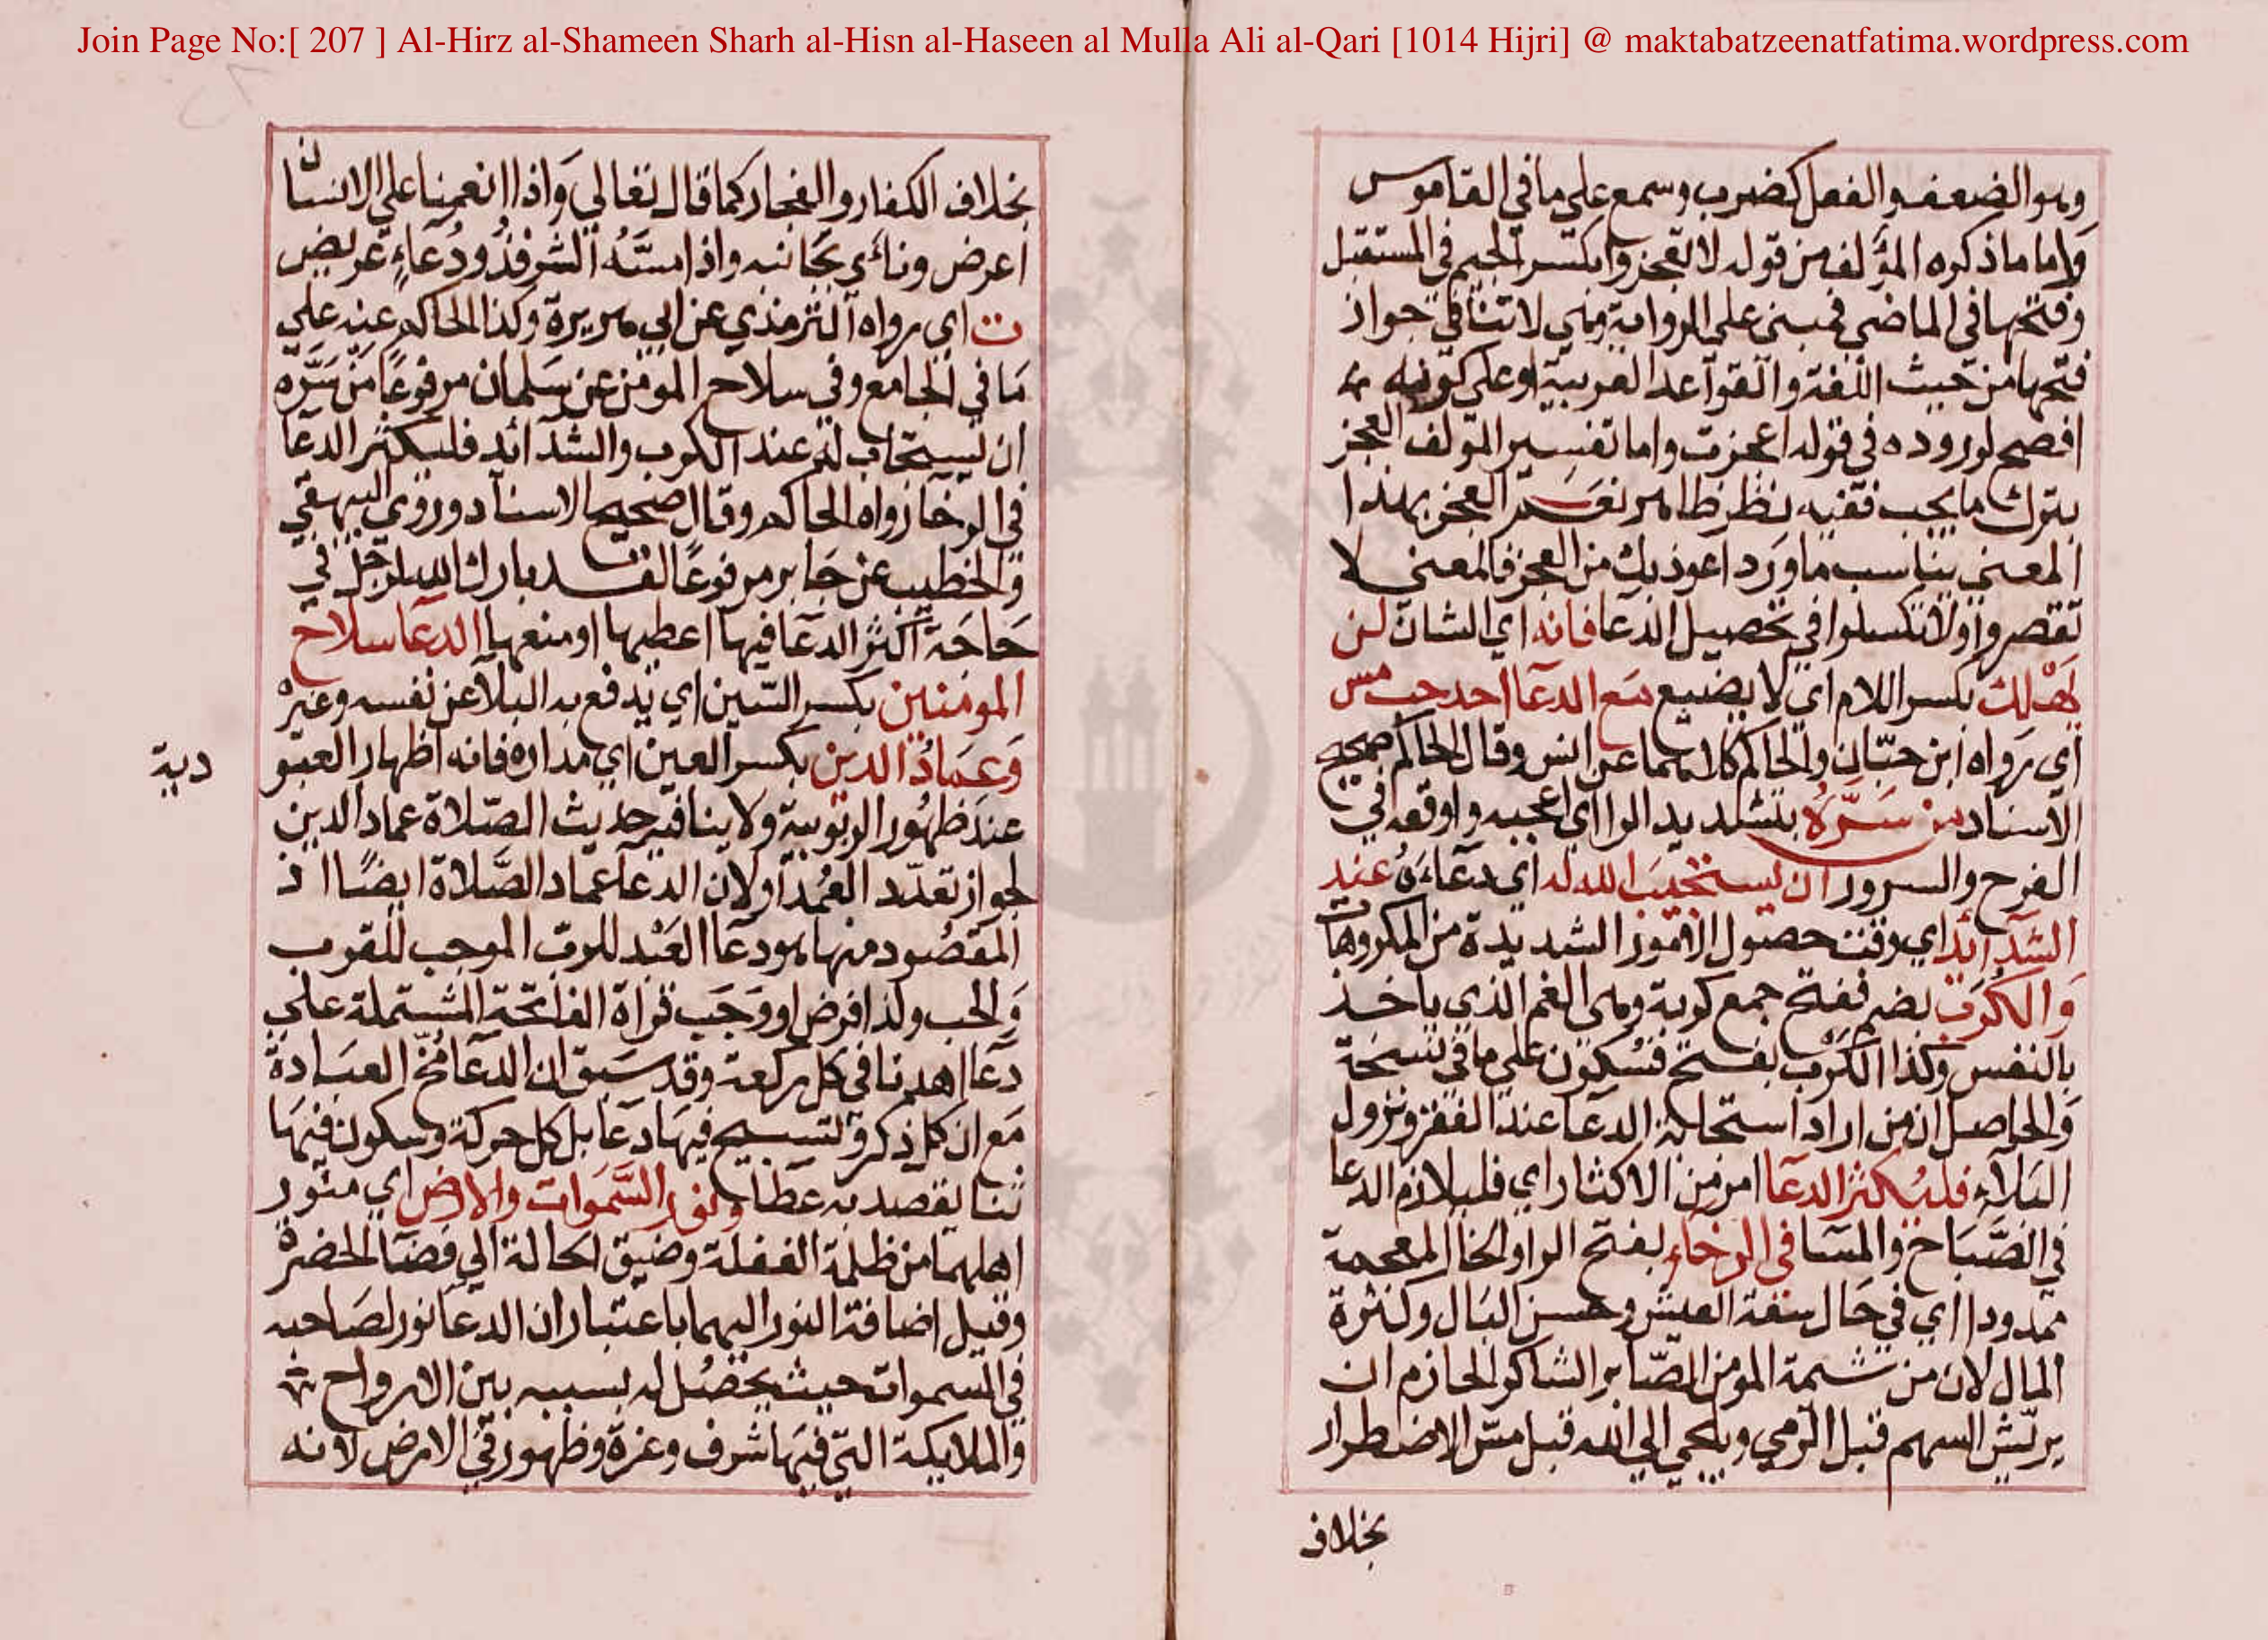 Join Page No:[ 207 ] Al-Hirz al-Shameen Sharh al-Hisn al-Haseen al Mulla Ali al-Qari [1014 Hijri] @ maktabatzeenatfatima.wordpress.com
وهو الضعف والفعل كضرب وسمع على ما في القاموس
واما ما ذكره المؤلف من قوله لا تعجزوا بكسر الجيم في المستقبل
وفتحها في الماضي فمبني على الرواية وهي لا تنافي جواز
فتحها من حيث اللغة والقواعد العربية او على كونه
افصح لوروده في قوله اعجزت واما تفسير المؤلف العجز
بترك ما يجب ففيه نظر ظاهر نعم العجز بهذا
المعنى يناسب ما ورد اعوذ بك من العجز فالمعنى لا
تقصروا ولا تكسلوا في تحصيل الدعا فانه اي الشان لن
يهلك بكسر اللام اي لا يضيع مع الدعا احد حب مس
اي رواه ابن حبان والحاكم كلاهما عن انس وقال الحاكم صحيح
الاسناد من سره بتشديد الرا اي اعجبه واوقعه في
الفرح والسرور ان يستجيب الله له اي دعاءه عند
الشدائد اي وقت حصول الامور الشديدة من المكروهات
والكرب بضم ففتح جمع كربة وهي الغم الذي ياخذ
بالنفس وكذا الكرب بفتح فسكون على ما في نسخة
والحاصل ان من اراد استجابة الدعا عند الفقر ونزول
البلاء فليكثر الدعا امر من الاكثار اي فليلازم الدعا
في الصباح والمسا في الرخاء بفتح الرا والخا المعجمة
ممدودا اي في حال سعة العيش وحسن البال وكثرة
المال لان من شيمة المؤمن الصابر الشاكر الحازم ان
يريش السهم قبل الرمي ويلتجي الى الله قبل مس الاضطرار
بخلاف
بخلاف الكفار والفجار كما قال تعالي واذا انعمنا علي الانسان
اعرض وناءي بجانبه واذا مسه الشر فذو دعاء عريض
ت اي رواه الترمذي عن ابي هريرة وكذا الحاكم عنه علي
ما في الجامع وفي سلاح المؤمن عن سلمان مرفوعا من سره
ان يستجاب له عند الكرب والشدائد فليكثر الدعا
في الرخا رواه الحاكم وقال صحيح الاسناد وروي البيهقي
والخطيب عن جابر مرفوعا لقد بارك الله لرجل في
حاجة اكثر الدعا فيها اعطيها او منعها الدعا سلاح
المومنين بكسر السين اي يدفع به البلا عن نفسه وغيره
وعماد الدين بكسر العين اي مداره فانه اظهار العبو
دية
عند ظهور الربوبية ولا ينافيه حديث الصلاة عماد الدين
لجواز تعدد العمد او لان الدعا عماد الصلاة ايضا اذ
المقصود منها هو دعا العبد للرب الموجب للقرب
والحب ولذا فرض او وجب قراة الفاتحة المشتملة علي
دعا اهدنا في كل ركعة وقد سبق ان الدعا مخ العبادة
مع ان كل ذكر وتسبيح فيها دعا بل كل حركة وسكون فيها
ثنا يقصد به عطا ونور السموات والارض اي منور
اهلهما من ظلمة الغفلة وضيق الحالة الي فضا الحضرة
وقيل اضافة النور اليهما باعتبار ان الدعا نور لصاحبه
في السموات حيث يحصل له بسببه بين الارواح
والملايكة التي فيها شرف وعزة وظهور في الارض لانه